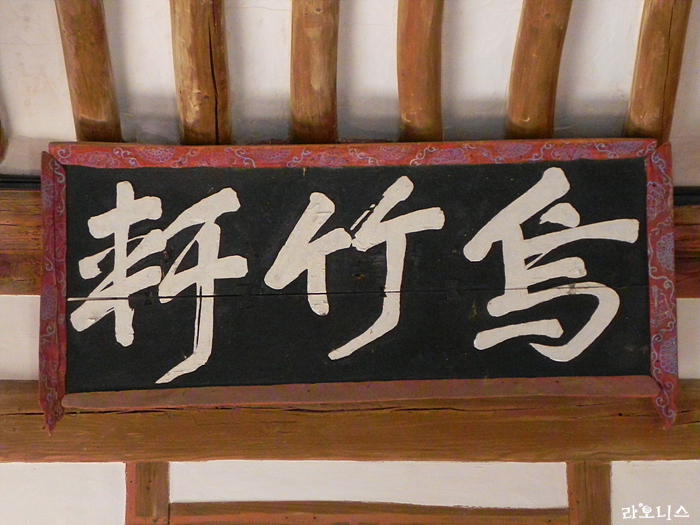 烏竹軒
라오니스